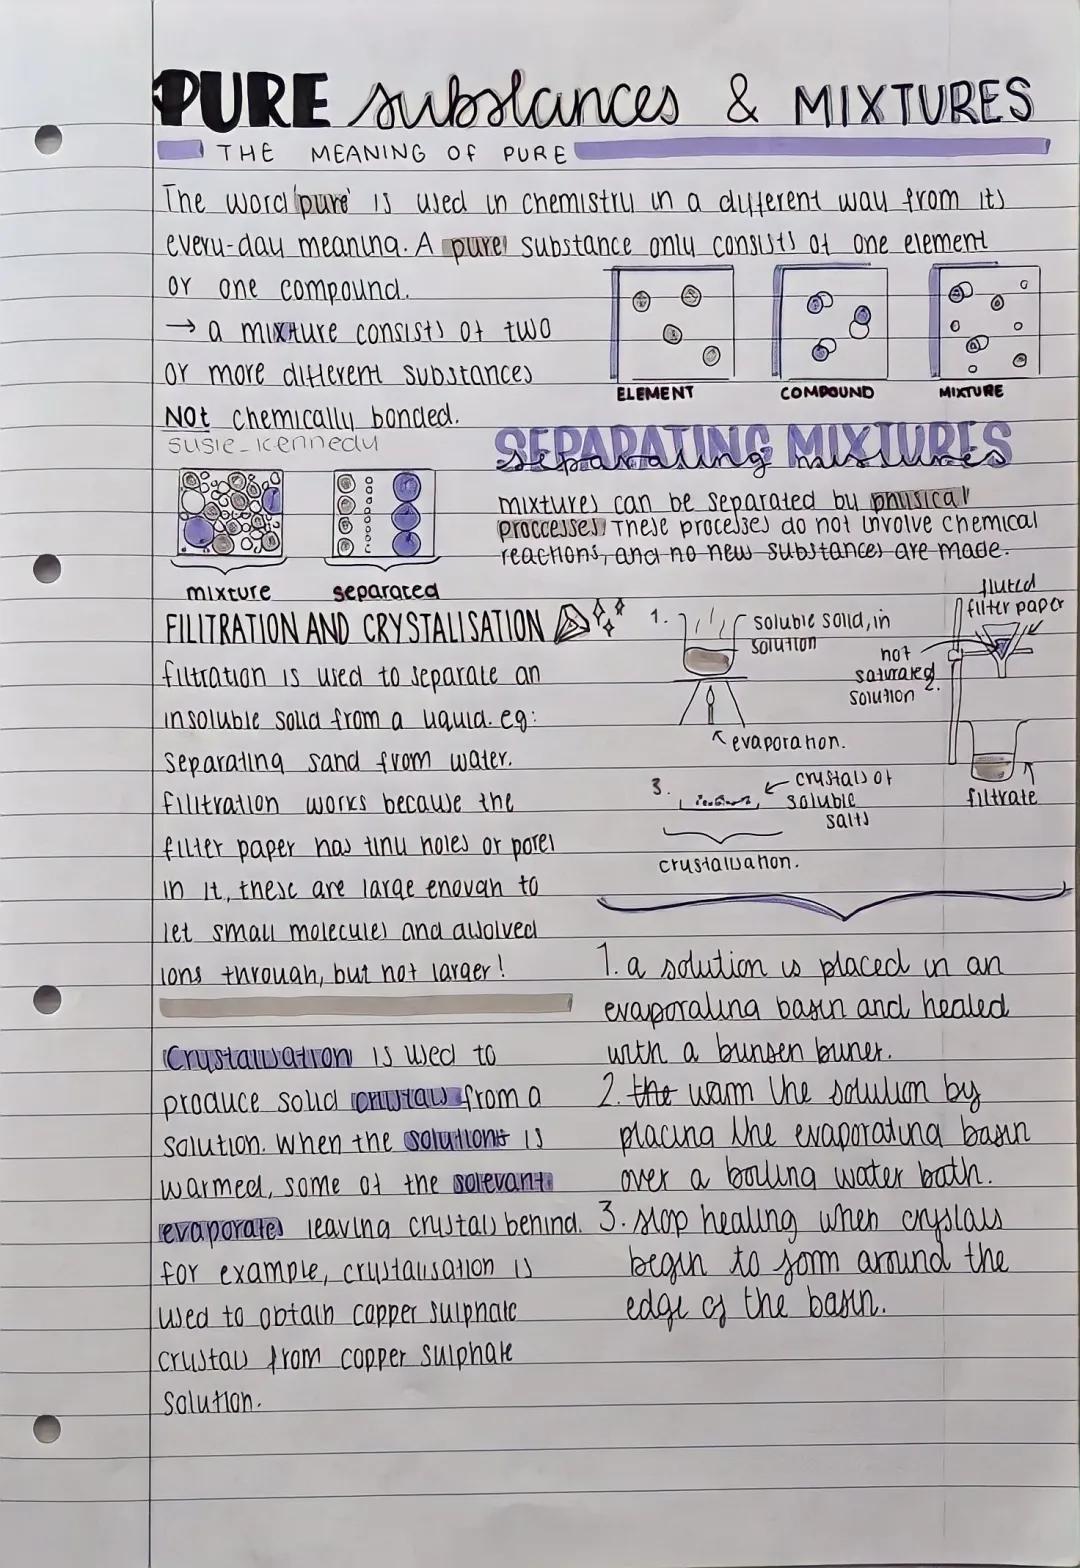 PURE substances & MIXTURES
THE MEANING OF PURE
The word 'pure' is used in chemistry in a different way from its
every-day meaning. A pure substance only consists of one element
or one compound.
→ a mixture consists of two
or more different substances
NOt chemically bonded.
ELEMENT
COMPOUND
MIXTURE
susie_kennedy
mixture
separated
SEPARATING MIXTURES
separating mixtures
mixtures can be separated by phisical
proccesses. These processes do not involve chemical
reactions, and no new substances are made.
FILITRATION AND CRYSTALISATION
filtration is used to separate an
insoluble solid from a liquid. eg:
separating sand from water.
filitration works because the
filter paper has tiny holes or pores
in it, these are large enough to
let small molecules and dissolved
ions through, but not larger!
1.
soluble solid, in
solution
evaporation.
fluted
filter paper
not
saturated
solution 2.
filtrate
3.
crystals of
soluble
salts
crystalisation.
Crystalisation is used to
produce solid crystals from a
solution. When the solutions is
warmed, some of the solevant
evaporates leaving crystals behind.
for example, crystalisation is
used to obtain copper sulphate
crystals from copper sulphate
solution.
1. a solution is placed in an
evaporating basin and heated
with a bunsen buner.
2. the warm the solution by
placing the evaporating basin
over a boiling water bath.
3. stop heating when crystals
begin to form around the
edge of the basin.